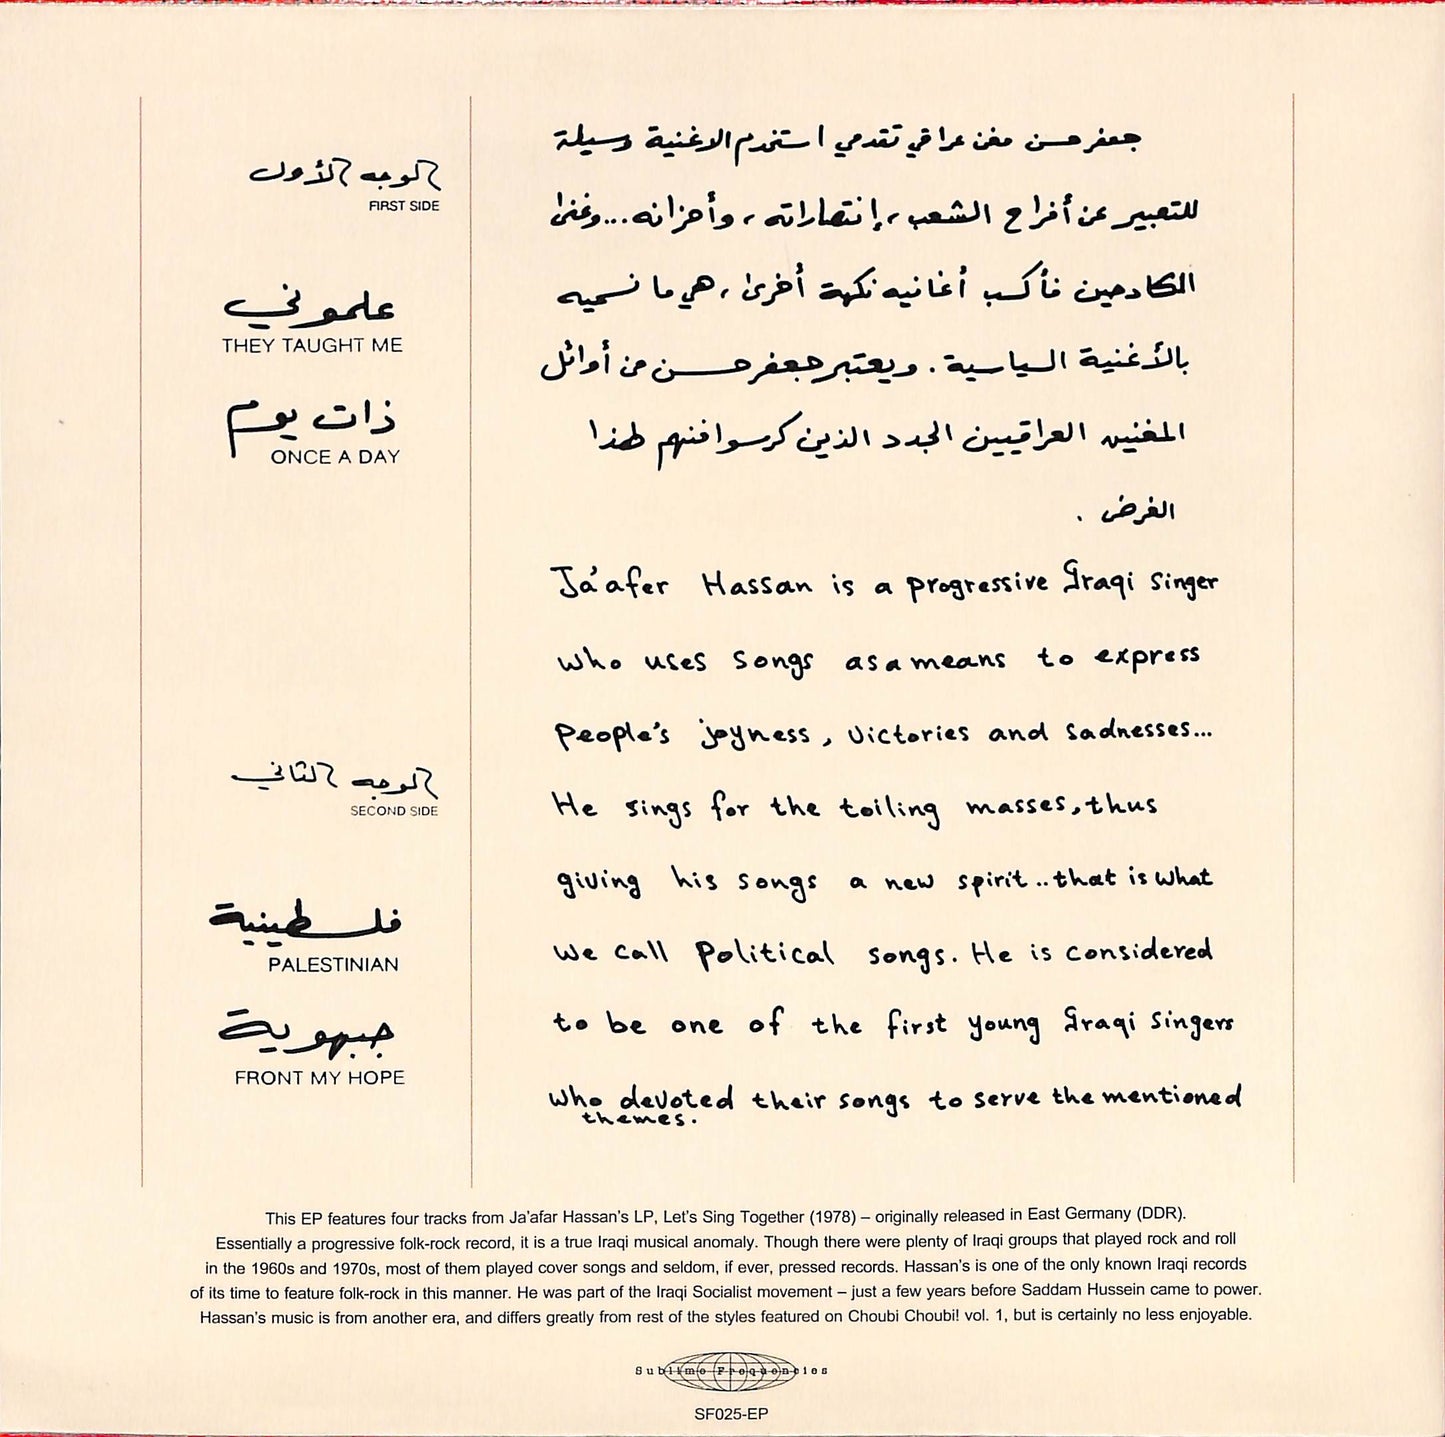 الوجه الأول
FIRST SIDE
علموني
THEY TAUGHT ME
ذات يوم
ONCE A DAY
الوجه الثاني
SECOND SIDE
فلسطينية
PALESTINIAN
جبهوية
FRONT MY HOPE
جعفر حسن مغن عراقي تقدمي استخدم الاغنية وسيلة
للتعبير عن أفراح الشعب، إنتصاراته، وأحزانه...وغنى
الكادحين فأكسب أغانيه نكهة أخرى، هي ما نسميه
بالأغنية السياسية. ويعتبر جعفر حسن من أوائل
المغنين العراقيين الجدد الذين كرسوا فنهم لهذا
الغرض.
Ja'afer Hassan is a progressive Iraqi singer
who uses songs as a means to express
people's joyness, victories and sadnesses...
He sings for the toiling masses, thus
giving his songs a new spirit.. that is what
we call political songs. He is considered
to be one of the first young Iraqi singers
who devoted their songs to serve the mentioned
themes.
This EP features four tracks from Ja'afar Hassan's LP, Let's Sing Together (1978) – originally released in East Germany (DDR).
Essentially a progressive folk-rock record, it is a true Iraqi musical anomaly. Though there were plenty of Iraqi groups that played rock and roll
in the 1960s and 1970s, most of them played cover songs and seldom, if ever, pressed records. Hassan's is one of the only known Iraqi records
of its time to feature folk-rock in this manner. He was part of the Iraqi Socialist movement – just a few years before Saddam Hussein came to power.
Hassan's music is from another era, and differs greatly from rest of the styles featured on Choubi Choubi! vol. 1, but is certainly no less enjoyable.
Sublime Frequencies
SF025-EP